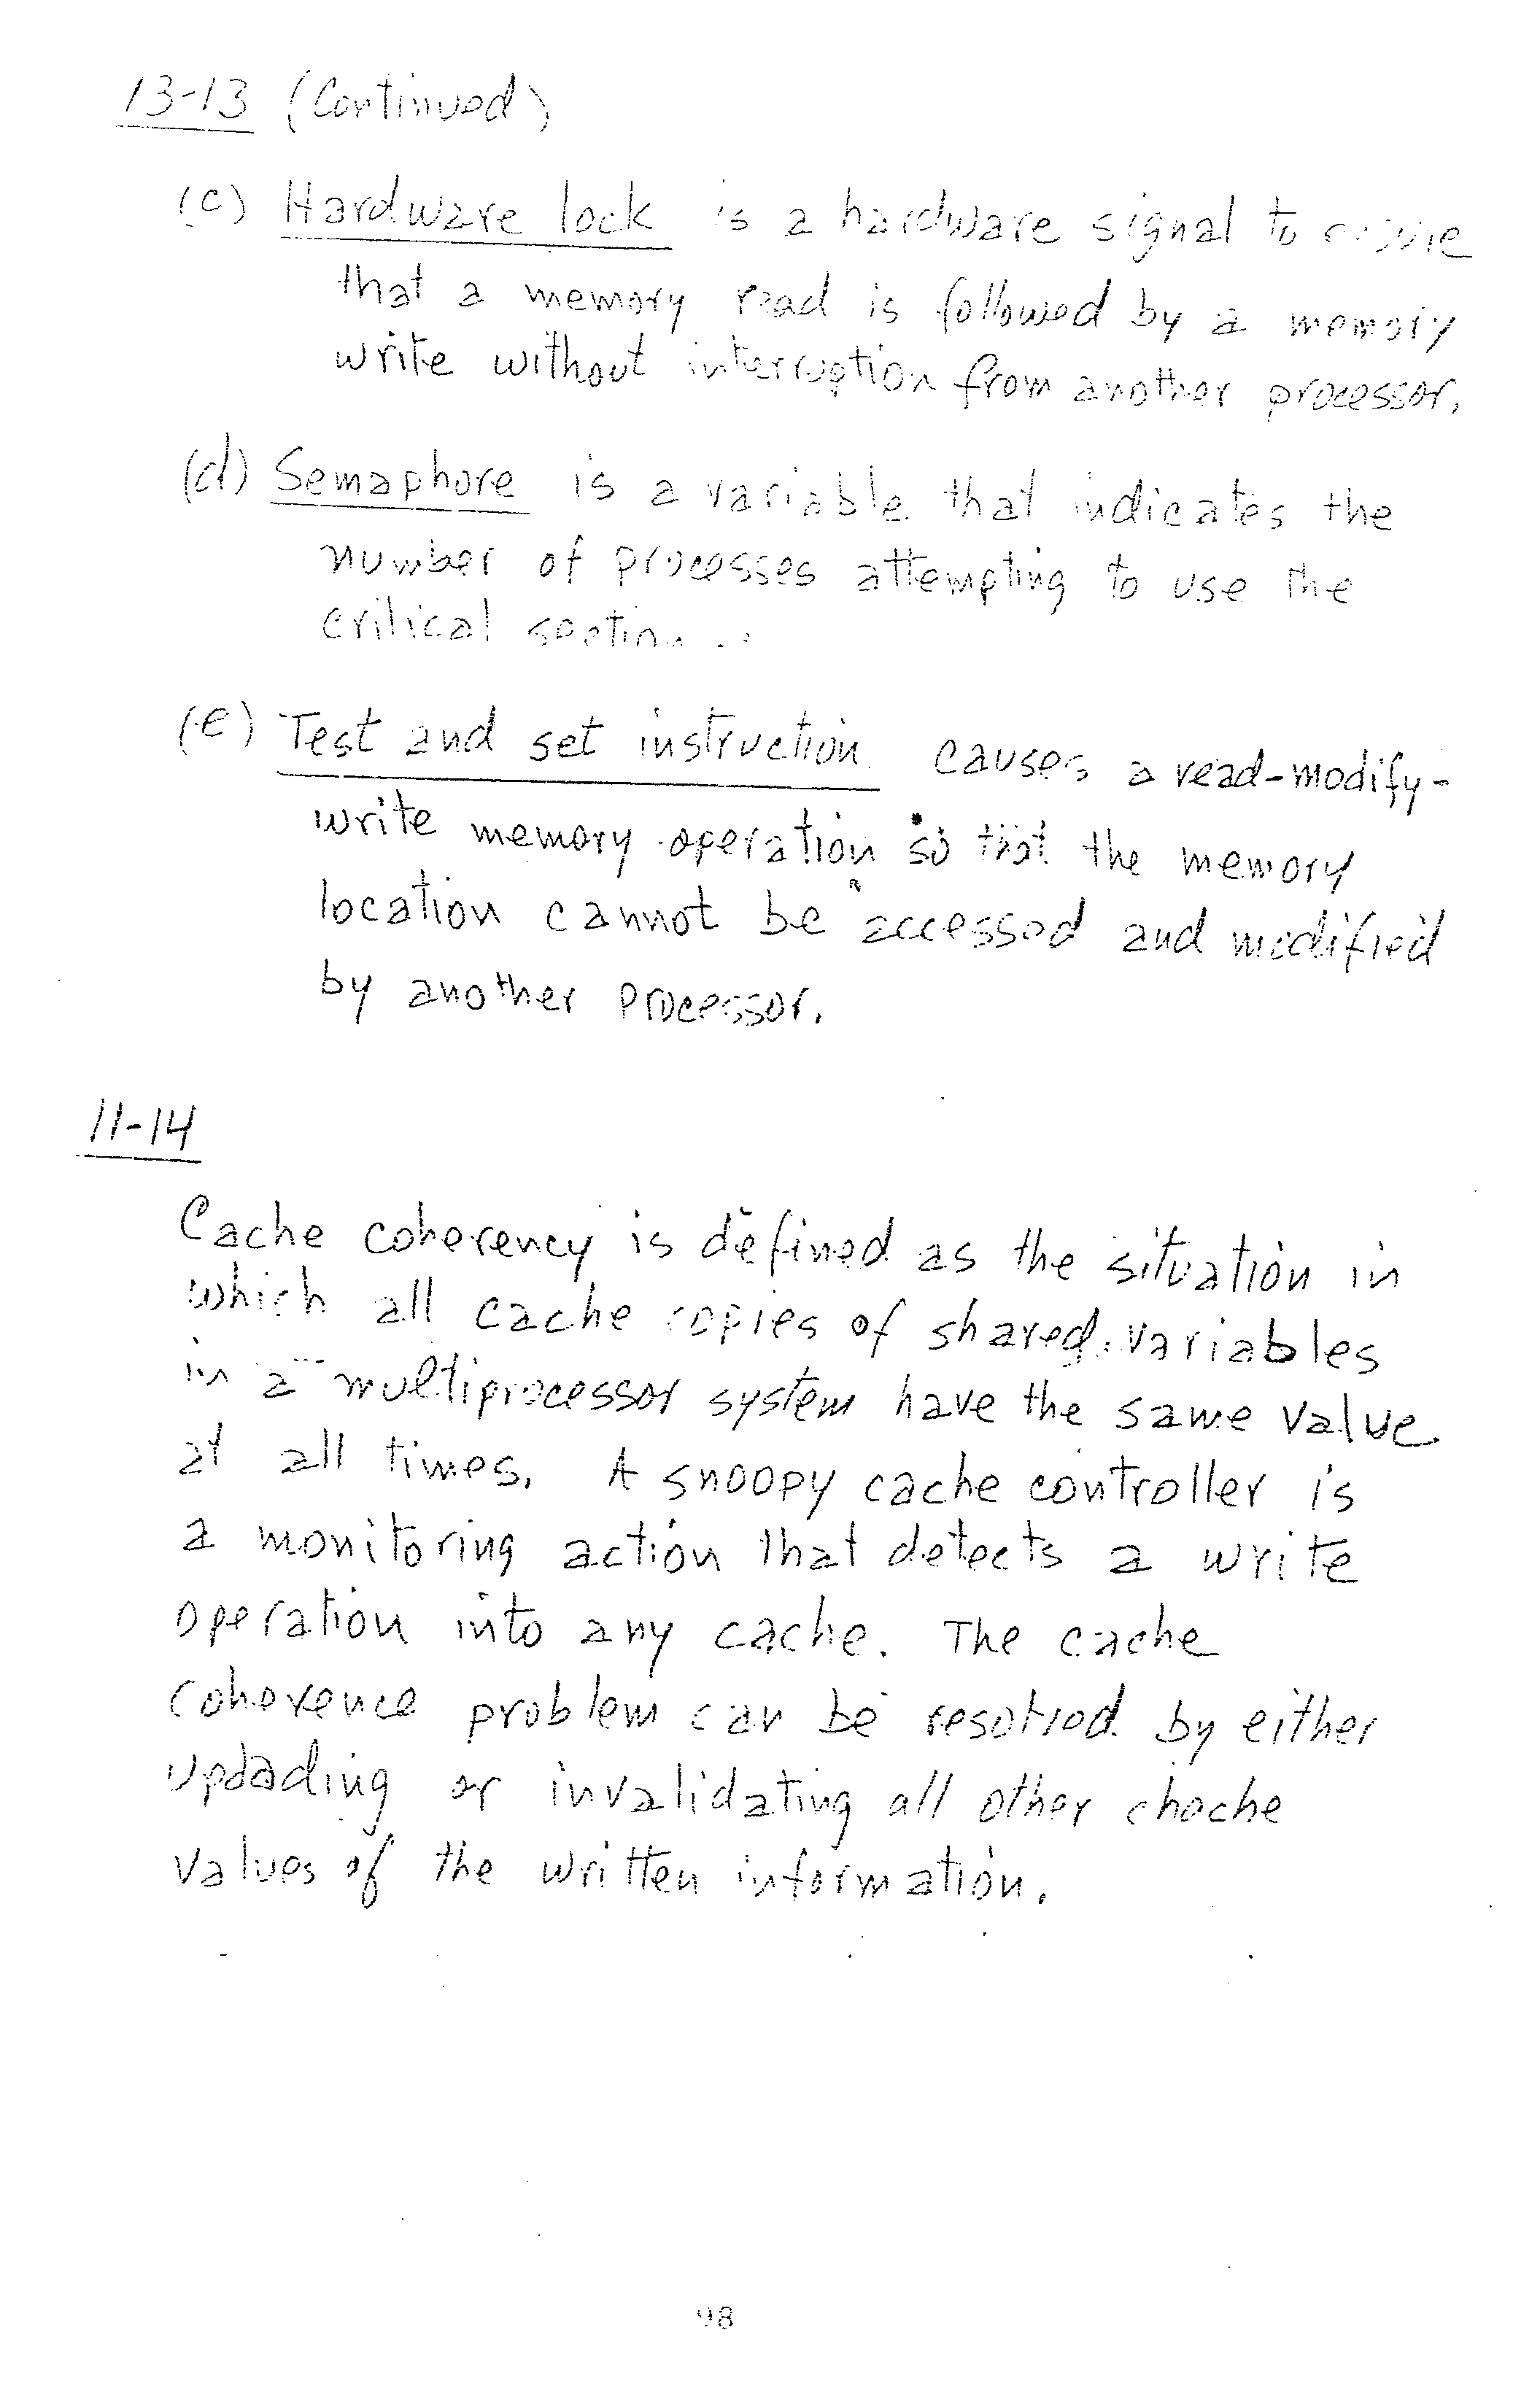 13-13 (Continued)
(c) Hardware lock is a hardware signal to
that a memory read is followed by a memory
write without interruption from another processor.
(d) Semaphore is a variable that indicates the
number of processes attempting to use the
critical section.
(e) Test and set instruction causes a read-modify-
write memory operation so that the memory
location cannot be accessed and modified
by another processor.
11-14
Cache coherency is defined as the situation in
which all cache copies of shared variables
in a multiprocessor system have the same value
at all times. A snoopy cache controller is
a monitoring action that detects a write
operation into any cache. The cache
coherence problem can be by either
updading or invalidating all other chache
values of the written information.
98